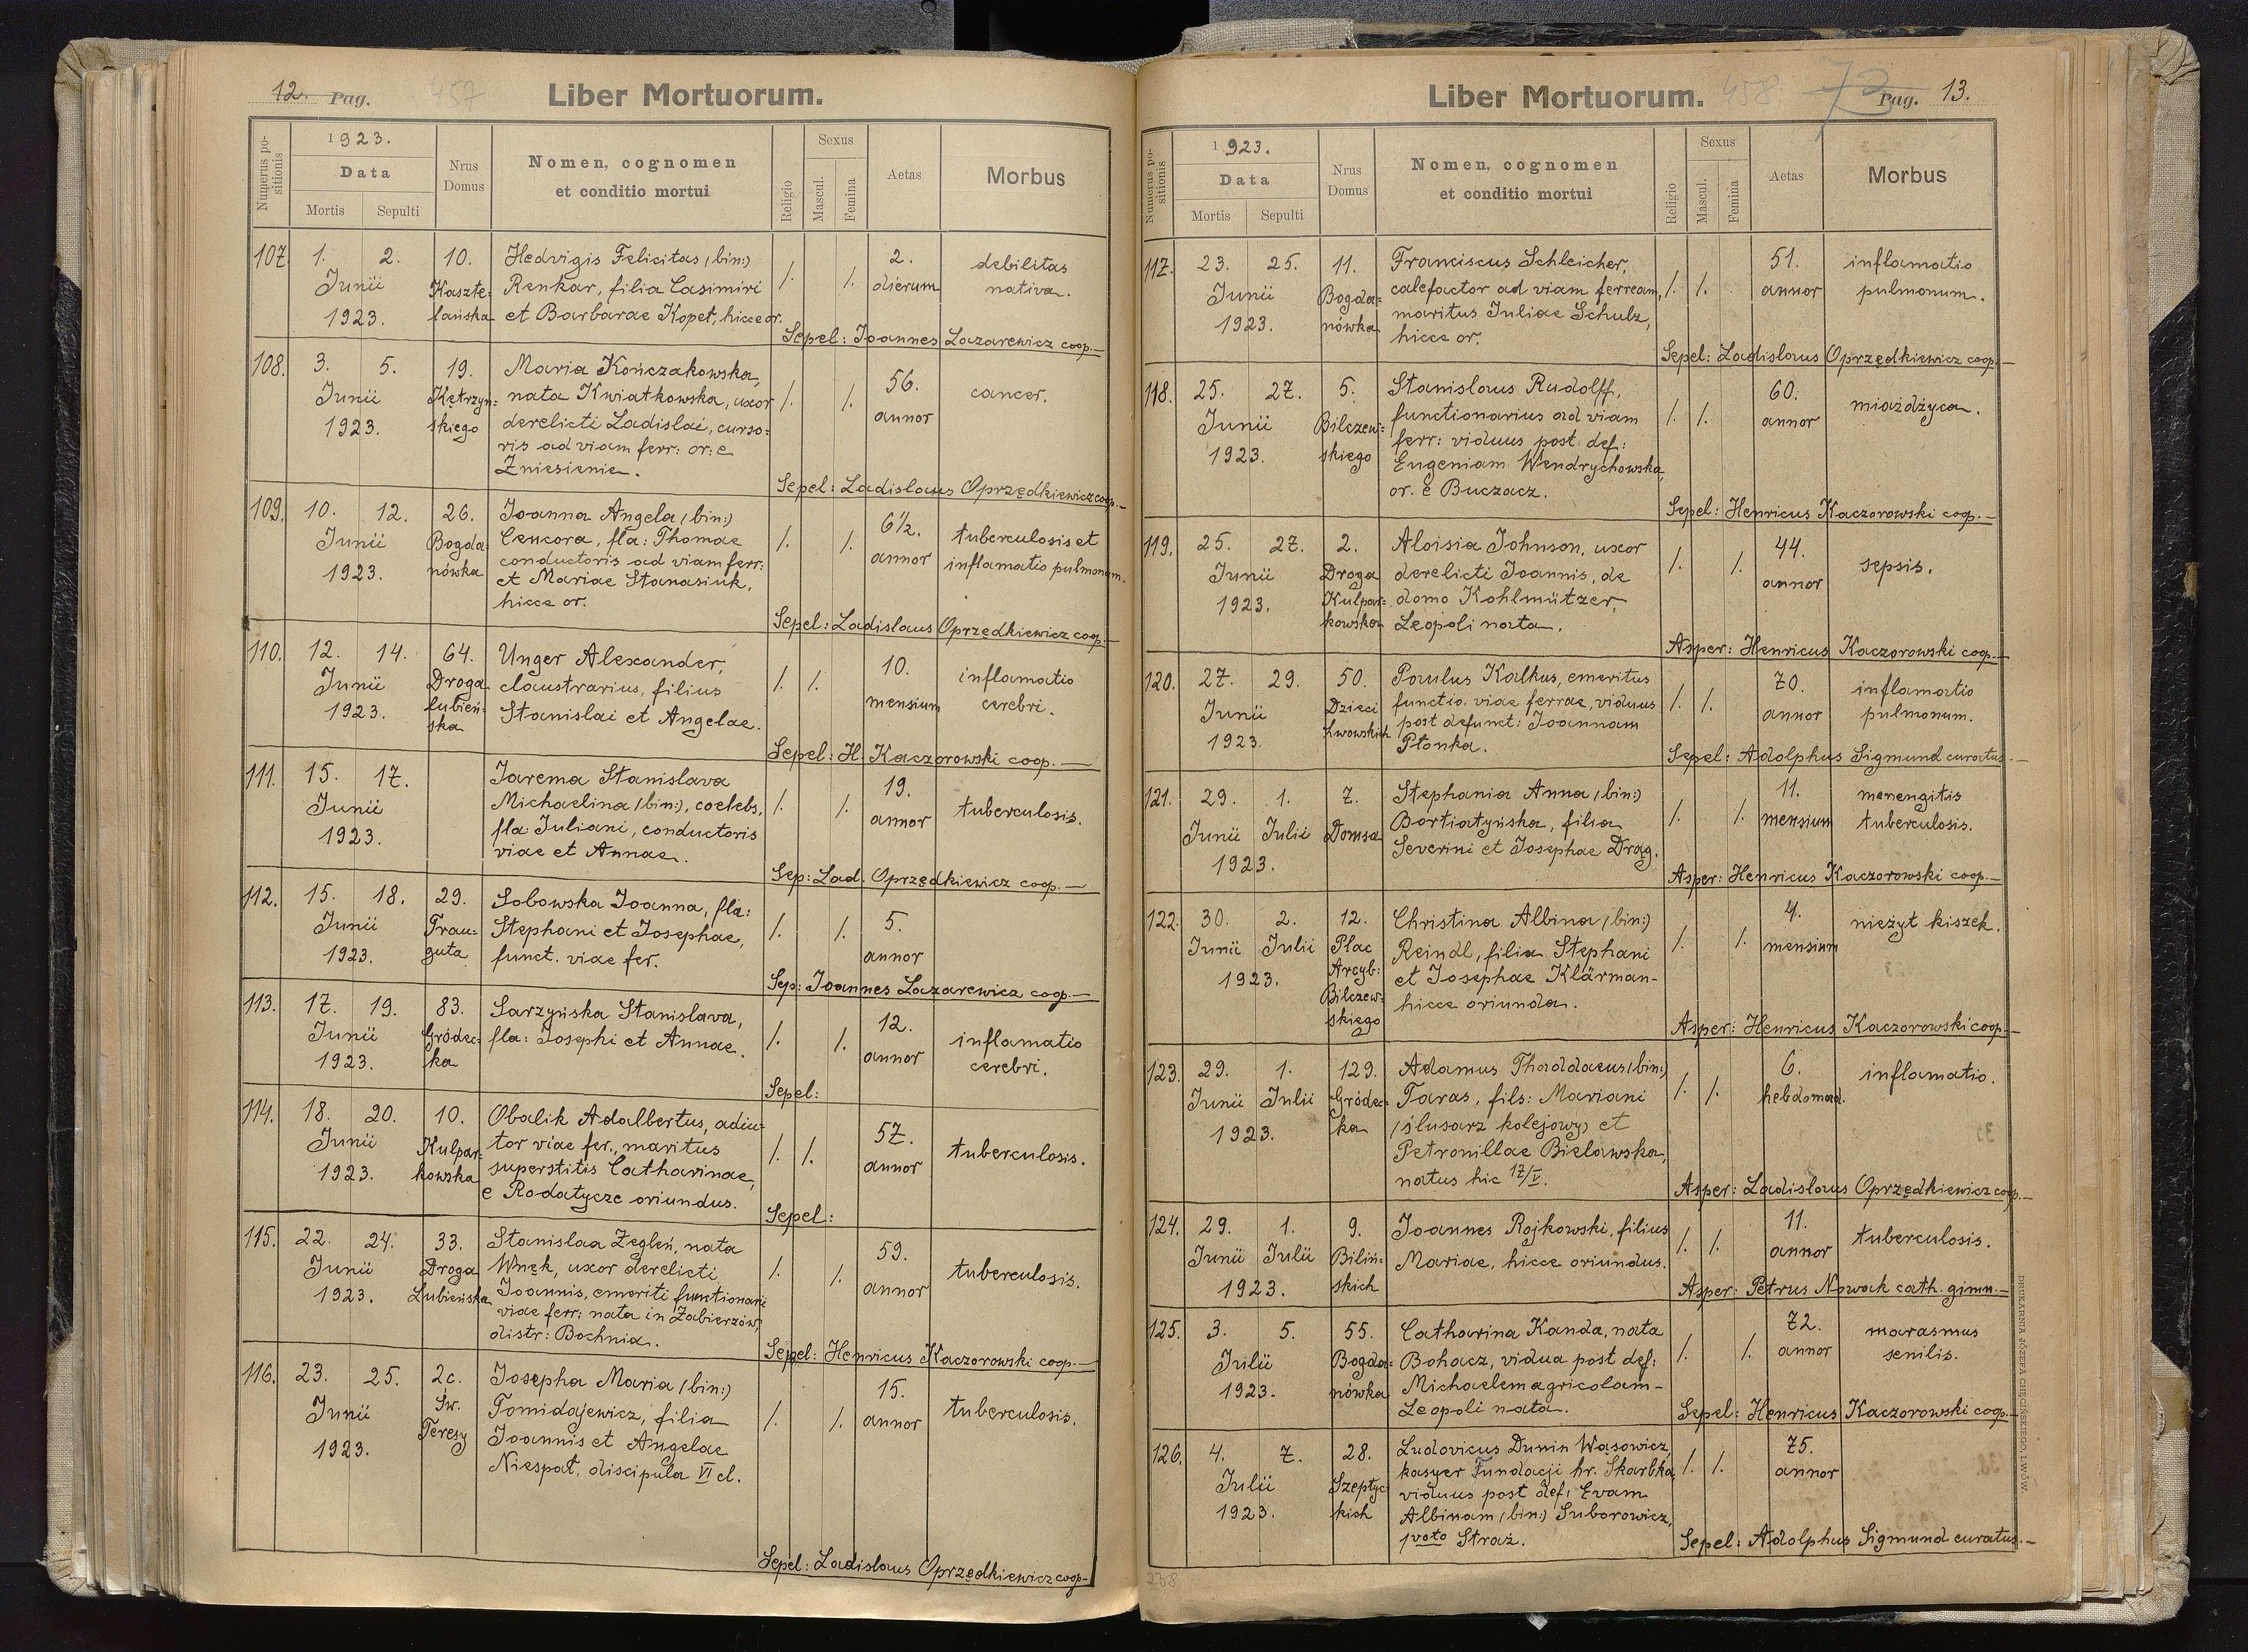 12. Pag. 457 Liber Mortuorum.
Numerus positionis
1923.
Data
Mortis Sepulti
Nrus Domus
Nomen, cognomen
et conditio mortui
Religio
Sexus
Mascul. Femina
Aetas
Morbus
107. 1. 2. 10. Hedvigis Felicitas (bin:) /. /. 2. debilitas
Junii Kaszte= Renkar, filia Casimiri dierum nativa.
1923. lańska et Barbarae Kopet, hicce or.
Sepel: Joannes Lazarewicz coop.—
108. 3. 5. 19. Maria Kończakowska, /. /. 56. cancer.
Junii Kętrzyń= nata Kwiatkowska, uxor annor
1923. skiego derelicti Ladislai, curso=
ris ad viam ferr: or: e
Zniesienie.
Sepel: Ladislaus Oprzędkiewicz coop.—
109. 10. 12. 26. Joanna Angela (bin:) /. /. 6½. tuberculosis et
Junii Bogda= Cencora, fla: Thomae annor inflamatio pulmonum.
1923. nówka conductoris ad viam ferr:
et Mariae Stanasiuk,
hicce or.
Sepel: Ladislaus Oprzędkiewicz coop.—
110. 12. 14. 64. Unger Alexander, /. /. 10. inflamatio
Junii Droga claustrarius, filius mensium cerebri.
1923. lubień- Stanislai et Angelae.
ska
Sepel: H. Kaczorowski coop.—
111. 15. 17. Jarema Stanislava /. /. 19. tuberculosis.
Junii Michaelina (bin:), coelebs, annor
1923. fla: Juliani, conductoris
viae et Annae.
Sep: Lad. Oprzędkiewicz coop.—
112. 15. 18. 29. Sobowska Joanna, fla: /. /. 5.
Junii Trau= Stephani et Josephae, annor
1923. guta funct. viae fer.
Sep: Joannes Lazarewicz coop.—
113. 17. 19. 83. Sarzyńska Stanislava, /. /. 12. inflamatio
Junii Gródec= fla: Josephi et Annae. annor cerebri.
1923. ka
Sepel:
114. 18. 20. 10. Obalik Adalbertus, adiu= /. /. 57. tuberculosis.
Junii Kulpar= tor viae fer., maritus annor
1923. kowska superstitis Catharinae,
e Rodatycze oriundus.
Sepel:
115. 22. 24. 33. Stanislaa Zegleń, nata /. /. 59. tuberculosis.
Junii Droga Wnęk, uxor derelicti annor
1923. Lubieńska Joannis, emeriti functionarii
viae ferr: nata in Zabierzów,
distr: Bochnia.
Sepel: Henricus Kaczorowski coop.—
116. 23. 25. 2c. Josepha Maria (bin:) /. /. 15. tuberculosis.
Junii Św. Tomidajewicz, filia annor
1923. Teresy Joannis et Angelae
Niespał, discipula VI cl.
Sepel: Ladislaus Oprzędkiewicz coop.—
Liber Mortuorum. 458 73 Pag. 13.
Numerus positionis
1923.
Data
Mortis Sepulti
Nrus Domus
Nomen, cognomen
et conditio mortui
Religio
Sexus
Mascul. Femina
Aetas
Morbus
117. 23. 25. 11. Franciscus Schleicher, /. /. 51. inflamatio
Junii Bogda= calefactor ad viam ferream, annor pulmonum.
1923. nówka maritus Juliae Schulz,
hicce or.
Sepel: Ladislaus Oprzędkiewicz coop.—
118. 25. 27. 5. Stanislaus Rudolff, /. /. 60. miażdżyca.
Junii Bilczew= functionarius ad viam annor
1923. skiego ferr: viduus post def:
Eugeniam Wendrychowska,
or. e Buczacz.
Sepel: Henricus Kaczorowski coop.—
119. 25. 27. 2. Aloisia Johnson, uxor /. /. 44. sepsis.
Junii Droga derelicti Joannis, de annor
1923. Kulpar= domo Kohlmützer,
kowska Leopoli nata.
Asper: Henricus Kaczorowski coop.—
120. 27. 29. 50. Paulus Kalkus, emeritus /. /. 70. inflamatio
Junii Dzieci functio. viae ferrae, viduus annor pulmonum.
1923. Lwowskich post defunct: Joannam
Płonka.
Sepel: Adolphus Sigmund curatus.—
121. 29. 1. 7. Stephania Anna (bin:) /. /. 11. menengitis
Junii Julii Domsa Bortiatyńska, filia mensium tuberculosis.
1923. Severini et Josephae Drąg.
Asper: Henricus Kaczorowski coop.—
122. 30. 2. 12. Christina Albina (bin:) /. /. 4. nieżyt kiszek.
Junii Julii Plac Reindl, filia Stephani mensium
1923. Arcyb: et Josephae Klärman-
Bilczew= hicce oriunda.
skiego
Asper: Henricus Kaczorowski coop.—
123. 29. 1. 129. Adamus Thaddaeus (bin:) /. /. 6. inflamatio.
Junii Julii Gródec= Taras, fils: Mariani hebdomad.
1923. ka (ślusarz kolejowy) et
Petronillae Bielawska,
natus hic 17/V.
Asper: Ladislaus Oprzędkiewicz coop.—
124. 29. 1. 9. Joannes Rojkowski, filius /. /. 11. tuberculosis.
Junii Julii Biliń= Mariae, hicce oriundus. annor
1923. skich
Asper: Petrus Nowak cath. gimn.—
125. 3. 5. 55. Catharina Kanda, nata /. /. 72. marasmus
Julii Bogda= Bohacz, vidua post def: annor senilis.
1923. nówka Michaelem agricolam-
Leopoli nata.
Sepel: Henricus Kaczorowski coop.—
126. 4. 7. 28. Ludovicus Dunin Wąsowicz, /. /. 75.
Julii Szeptyc= kasyer Fundacji hr. Skarbka, annor
1923. kich viduus post def: Evam
Albinam (bin:) Suborowicz,
1voto Straż.
Sepel: Adolphus Sigmund curatus.—
238
DRUKARNIA JÓZEFA CHĘCIŃSKIEGO, LWÓW.